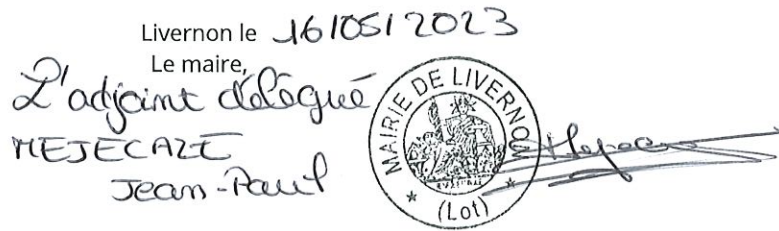 Livernon le 16/05/2023
Le maire,
L'adjoint délégué
MEJECAZE
Jean-Paul
MAIRIE DE LIVERNON
* (Lot) *